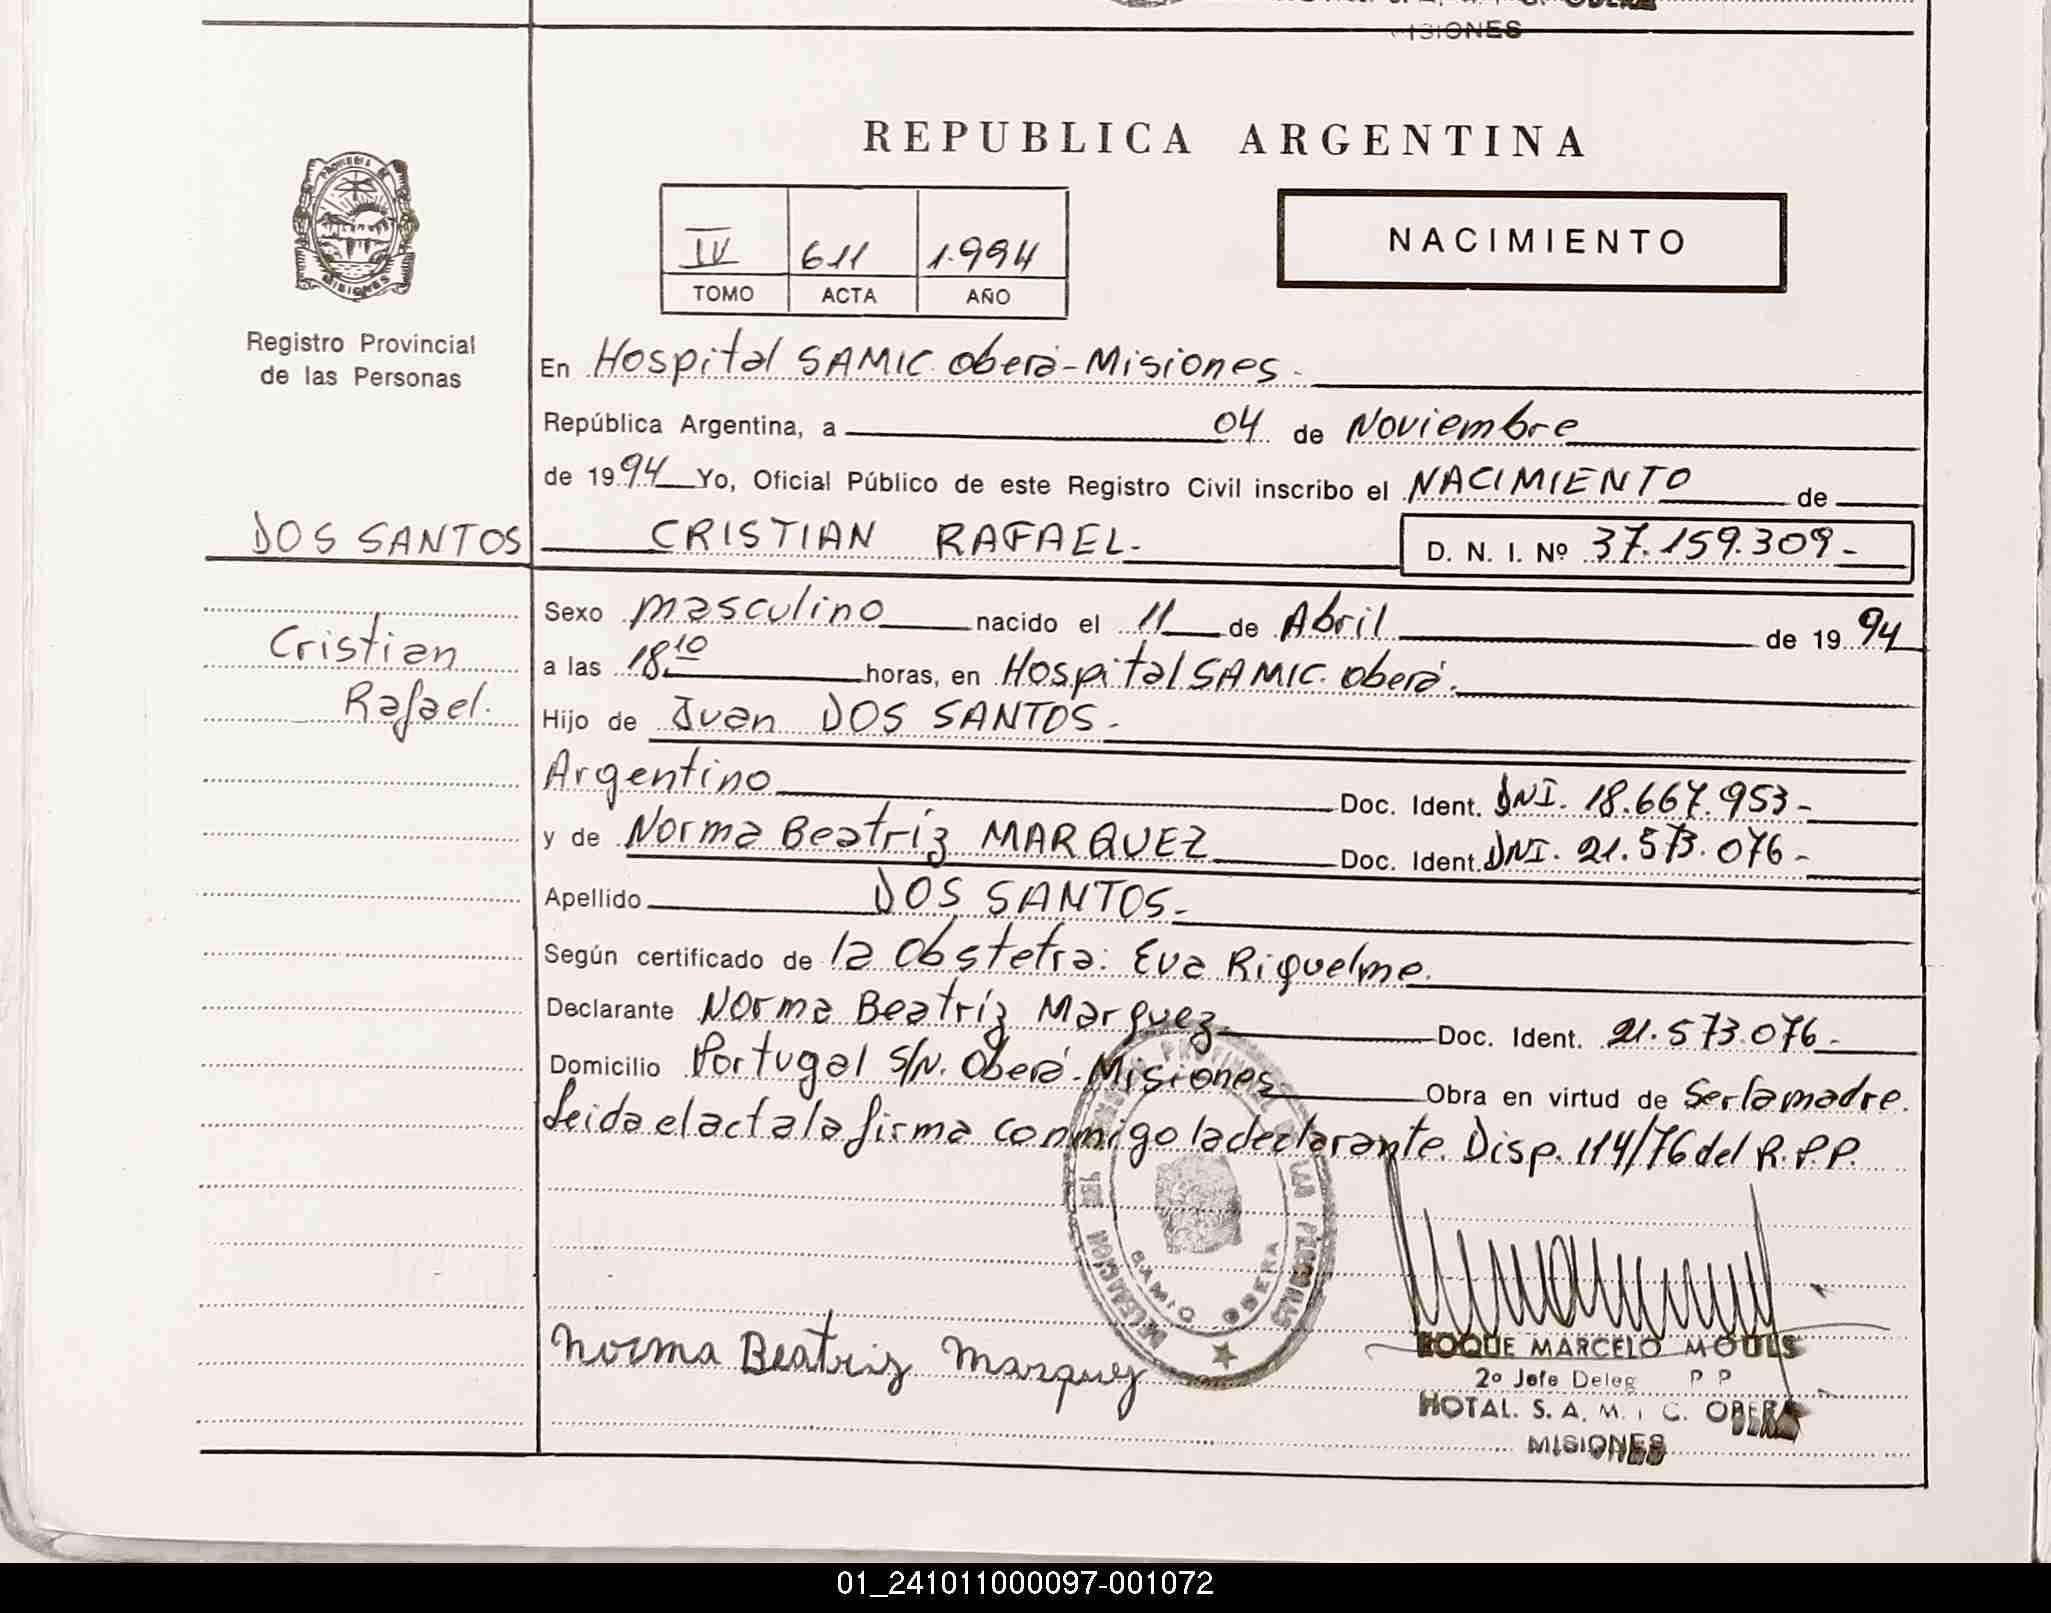 ISIONES
REPUBLICA ARGENTINA
IV 611 1.994
TOMO ACTA AÑO
NACIMIENTO
PROVINCIA DE MISIONES
Registro Provincial
de las Personas
En Hospital SAMIC. Oberá-Misiones.
República Argentina, a 04 de Noviembre
de 1994 Yo, Oficial Público de este Registro Civil inscribo el NACIMIENTO de
DOS SANTOS CRISTIAN RAFAEL.- D. N. I. Nº 37.159.309-
Sexo masculino nacido el 11 de Abril de 1994
Cristian
a las 18¹⁰ horas, en Hospital SAMIC. Oberá.
Rafael.
Hijo de Juan DOS SANTOS.-
Argentino Doc. Ident. DNI. 18.667.953-
y de Norma Beatríz MARQUEZ Doc. Ident. DNI. 21.573.076-
Apellido DOS SANTOS.-
Según certificado de la Obstetra: Eva Riquelme.
Declarante Norma Beatríz Marquez Doc. Ident. 21.573.076.-
Domicilio Portugal S/N. Oberá-Misiones Obra en virtud de Ser la madre.
Leida el acta la firma conmigo la declarante. Disp. 114/76 del R.P.P.
SAMIC OBERA
Norma Beatriz Marquez
ROQUE MARCELO MOULS
2º Jefe Deleg P P
HOTAL. S. A. M. I C. OBERA
MISIONES
01_241011000097-001072